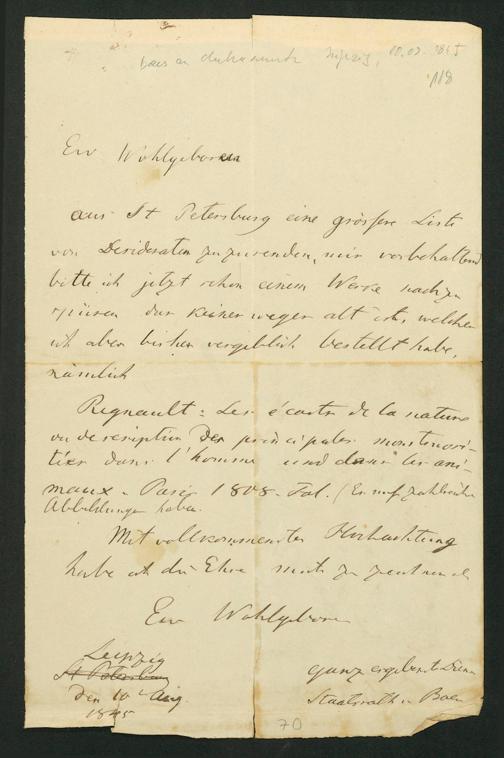 Leipzig, 10.08.1845
118
Ew Wohlgeboren
aus St Petersburg eine grössere Liste
von Desideraten zuzusenden, mir vorbehaltend
bitte ich jetzt schon einem Werke nachzu
spüren das keineswegs alt ist, welches
ich aber bisher vergeblich bestellt habe,
nämlich
Regnault: Les écarts de la nature
ou description des principales monstruosi-
tés dans l'homme und dans les ani-
maux. Paris 1808. Fol. (Es muss zahlreiche
Abbildungen haben.
Mit vollkommenster Hochachtung
habe ich die Ehre mich zu zeichnen als
Ew Wohlgeboren
Leipzig
St Petersburg
den 10 Aug.
1845
ganz ergebenster Diener
Staatsrath v Baer
70